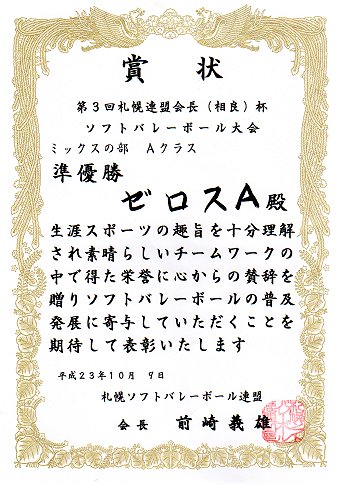 賞状
第3回札幌連盟会長(相良)杯
ソフトバレーボール大会
ミックスの部 Aクラス
準優勝
ゼロスA殿
生涯スポーツの趣旨を十分理解
され素晴らしいチームワークの
中で得た栄誉に心からの賛辞を
贈りソフトバレーボールの普及
発展に寄与していただくことを
期待して表彰いたします
平成23年10月 9日
札幌ソフトバレーボール連盟
会長 前崎義雄